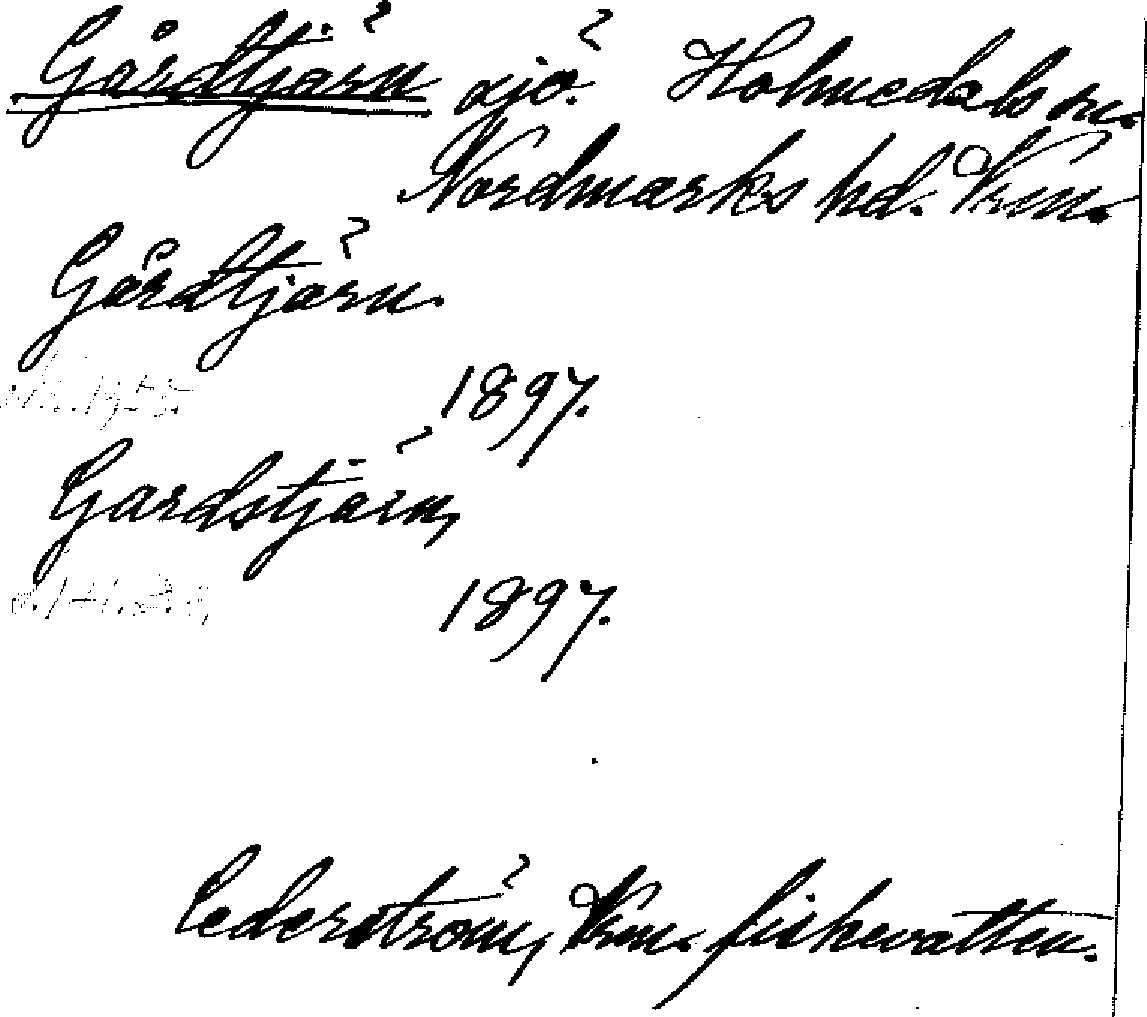 Gårdtjärn sjö. Holmedals sn.
Nordmarks hd. Vrm.
Gårdtjärn.
1897.
Gardstjärn,
1897.
Cederström, Vrm. fiskevatten.